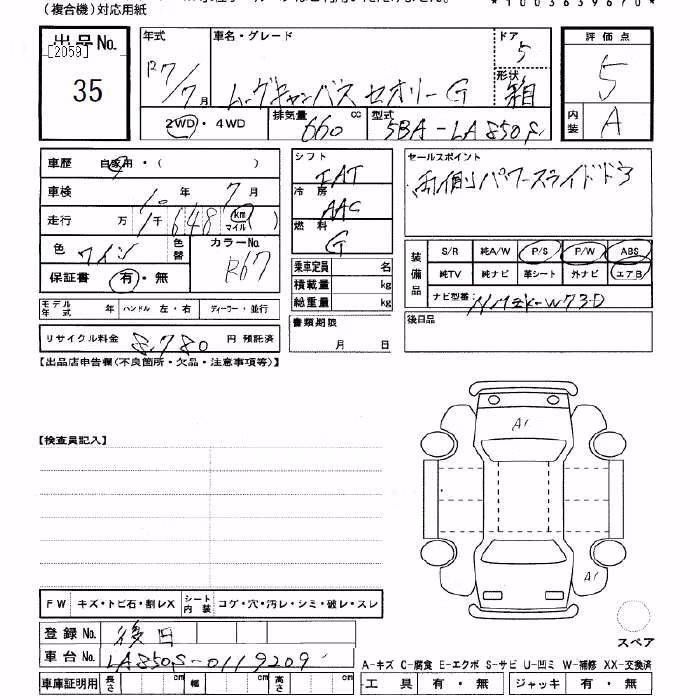 (複合機)対応用紙
*1003639670*
出品No. 年式 車名・グレード ドア 評価点
[2059]
35 R7/7月 ムーヴキャンバス セオリーG 5 形状 箱 5
2WD・4WD 排気量 660 cc 型式 5BA-LA850S 内装 A
車歴 自家用・( ) シフト IAT セールスポイント
車検 10年 7月 冷房 AAC 両側パワースライドドア
走行 万 1千648 km マイル 燃料 G
色 ワイン 色替 カラーNo. R67 装備品 S/R 純A/W P/S P/W ABS
保証書 有・無 乗車定員 名 純TV 純ナビ 革シート 外ナビ エアB
積載量 kg ナビ型番: NMZK-W73D
モデル年式 年 ハンドル 左・右 ディーラー・並行 総重量 kg
リサイクル料金 8,780 円 預託済 書類期限 月 日 後日品
【出品店申告欄(不良箇所・欠品・注意事項等)】
A1
【検査員記入】
A1
FW キズ・トビ石・割レX シート内装 コゲ・穴・汚レ・シミ・破レ・スレ
登録No. 後日 スペア
車台No. LA850S-0119209 A-キズ C-腐食 E-エクボ S-サビ U-凹ミ W-補修 XX-交換済
車庫証明用 長さ cm 幅 cm 高さ cm 工具 有・無 ジャッキ 有・無